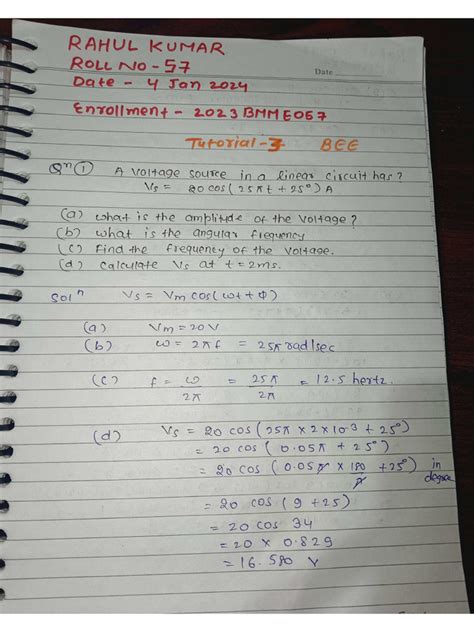 RAHUL KUMAR
ROLL NO - 57
Date
Date - 4 Jan 2024
Enrollment - 2023BMME067
Tutorial-3 BEE
Qⁿ① A voltage source in a linear circuit has?
Vs = 20 cos(25πt + 25°) A
(a) what is the amplitude of the voltage?
(b) what is the angular frequency
(c) Find the frequency of the voltage.
(d) calculate Vs at t = 2ms.
Solⁿ Vs = Vm cos(ωt + Φ)
(a) Vm = 20V
(b) ω = 2πf = 25π rad/sec
(c) f = ω/2π = 25π/2π = 12.5 hertz.
(d) Vs = 20 cos(25π × 2×10-3 + 25°)
= 20 cos( 0.05π + 25°)
= 20 cos( 0.05π × 180/π + 25°) in degree
= 20 cos (9 +25)
= 20 cos 34
= 20 × 0.829
= 16.580 V